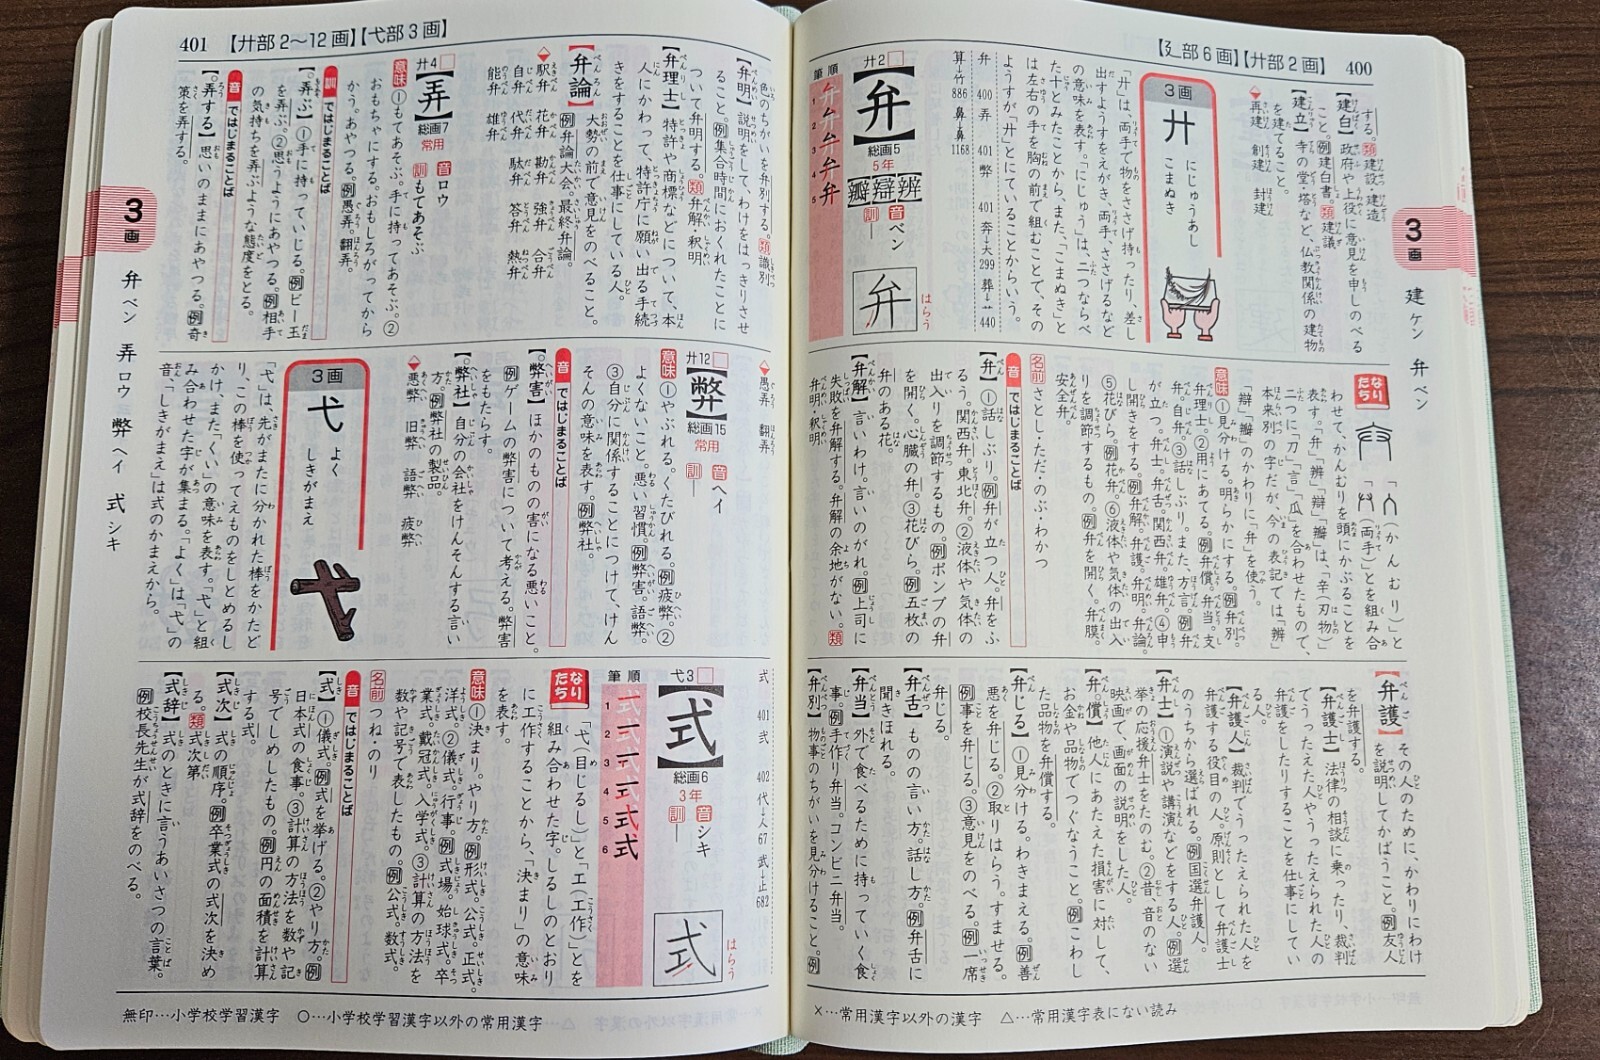 【廴部6画】【廾部2画】 400
する。類建設・建造
【建白】政府や上役に意見を申しのべる
こと。例建白書。類建議
【建立】寺の堂・塔など、仏教関係の建物
を建てること。
再建 創建 封建
3画
廾
にじゅうあし
こまぬき
「廾」は、両手で物をささげ持ったり、差し
出すようすをえがき、両手、ささげるなど
の意味を表す。「にじゅう」は、二つならべ
た十とみたことから、また、「こまぬき」と
は左右の手を胸の前で組むことで、その
ようすが「廾」とにていることからいう。
弁 400 弄 401 弊 401 奔→大299 葬→艹440
算→竹886 鼻→鼻1168
廾2
【弁】
総画5
5年
瓣辯辨
音ベン
訓―
弁
はらう
筆順
1 2 3 4 5
なりたち
「亼(かんむり)」と
「廾(両手)」とを組み合
わせて、かんむりを頭にかぶることを
表す。「弁」「辨」「辯」「瓣」は、「辛(刃物)」
二つに「刀」「言」「瓜」を合わせたもので、
本来別の字だが、今の表記では「辨」
「辯」「瓣」のかわりに「弁」を使う。
意味①見分ける。明らかにする。例弁別。
弁理士。②用にあてる。例弁償。弁当。支
弁。自弁。③話しぶり。また、方言。例弁
が立つ。弁士。弁舌。関西弁。雄弁。④申
し開きをする。例弁解。弁護。弁明。弁論。
⑤花びら。例花弁。⑥液体や気体の出入
りを調節するもの。例弁を開く。弁膜。
安全弁。
名前 さとし・ただ・のぶ・わか
音 ではじまることば
【弁】①話しぶり。例弁が立つ人。弁をふ
るう。関西弁。東北弁。②液体や気体の
出入りを調節するもの。例ポンプの弁
を開く。心臓の弁。③花びら。例五枚の
弁のある花。
【弁解】言いわけ。言いのがれ。例上司に
失敗を弁解する。弁解の余地がない。類
弁明・釈明
【弁護】その人のために、かわりにわけ
を説明してかばうこと。例友人
を弁護する。
【弁護士】法律の相談に乗ったり、裁判
でうったえた人やうったえられた人の
弁護をしたりすることを仕事にしてい
る人。
【弁護人】裁判でうったえられた人を
弁護する役目の人。原則として弁護士
のうちから選ばれる。例国選弁護人。
【弁士】①演説や講演などをする人。例選
挙の応援弁士をたのむ。②昔、音のない
映画で、画面の説明をした人。
【弁償】他人にあたえた損害に対して、
お金や品物でつぐなうこと。例こわし
た品物を弁償する。
【弁じる】①見分ける。わきまえる。例善
悪を弁じる。②取りはらう。すませる。
例用事を弁じる。③意見をのべる。例一席
弁じる。
【弁舌】ものの言い方。話し方。例弁舌に
聞きほれる。
【弁当】外で食べるために持っていく食
事。例手作り弁当。コンビニ弁当。
【弁別】物事のちがいを見分けること。例
×…常用漢字以外の漢字 △…常用漢字表にない読み
3画
建ケン 弁ベン
401 【廾部2〜12画】【弋部3画】
色のちがいを弁別する。類識別
【弁明】説明をして、わけをはっきりさせ
ること。例集合時間におくれたことに
ついて弁明する。類弁解・釈明
【弁理士】特許や商標などについて、本
人にかわって、特許庁に願い出る手続
きをすることを仕事にしている人。
【弁論】大勢の前で意見をのべること。
例弁論大会。最終弁論。
駅弁 花弁 勘弁 強弁 合弁
自弁 代弁 駄弁 答弁 熱弁
能弁 雄弁
廾4
【弄】
総画7
常用
音ロウ
訓もてあそぶ
意味①もてあそぶ。手に持ってあそぶ。②
おもちゃにする。おもしろがってから
かう。あやつる。例愚弄。翻弄。
訓 ではじまることば
【弄ぶ】①手に持っていじる。例ビー玉
を弄ぶ。②思うようにあやつる。例相手
の気持ちを弄ぶような態度をとる。
音 ではじまることば
【弄する】思いのままにあやつる。例奇
策を弄する。
愚弄 翻弄
廾12
【弊】
総画15
常用
音ヘイ
訓―
意味①やぶれる。くたびれる。例疲弊。②
よくないこと。悪い習慣。例弊害。語弊。
③自分に関係することにつけて、けん
そんの意味を表す。例弊社。
音 ではじまることば
【弊害】ほかのものの害になる悪いこと。
例ゲームの弊害について考える。弊害
をもたらす。
【弊社】自分の会社をけんそんする言い
方。例弊社の製品。
悪弊 旧弊 語弊 疲弊
3画
弋
よく
しきがまえ
「弋」は、先がまたに分かれた棒をかたど
り、この棒を使ってえものをしとめるし
かけ、また「くい」の意味を表す。「弋」と組
み合わせた字が集まる。「よく」は「弋」の
音、「しきがまえ」は式のかまえから。
式 401 弐 402 代→人67 武→止682
弋3
【式】
総画6
3年
音シキ
訓―
式
はらう
筆順
1 2 3 4 5 6
なりたち
「弋(目じるし)」と「工(工作)」とを
組み合わせた字。しるしのとおり
に工作することから、「決まり」の意味
を表す。
意味①決まり。やり方。例形式。公式。正式。
洋式。②儀式。行事。例式場。始球式。卒
業式。戴冠式。入学式。③計算の方法を
数や記号で表したもの。例公式。数式。
名前 つね・のり
音 ではじまることば
【式】①儀式。例式を挙げる。②やり方。例
日本式の食事。③計算の方法を数や記
号でしめしたもの。例円の面積を計算
する式。
【式次】式の順序。例卒業式の式次を決め
る。類式次第
【式辞】式のときに言うあいさつの言葉。
例校長先生が式辞をのべる。
無印…小学校学習漢字 ○…小学校学習漢字以外の常用漢字
3画
弁ベン 弄ロウ 弊ヘイ 式シキ